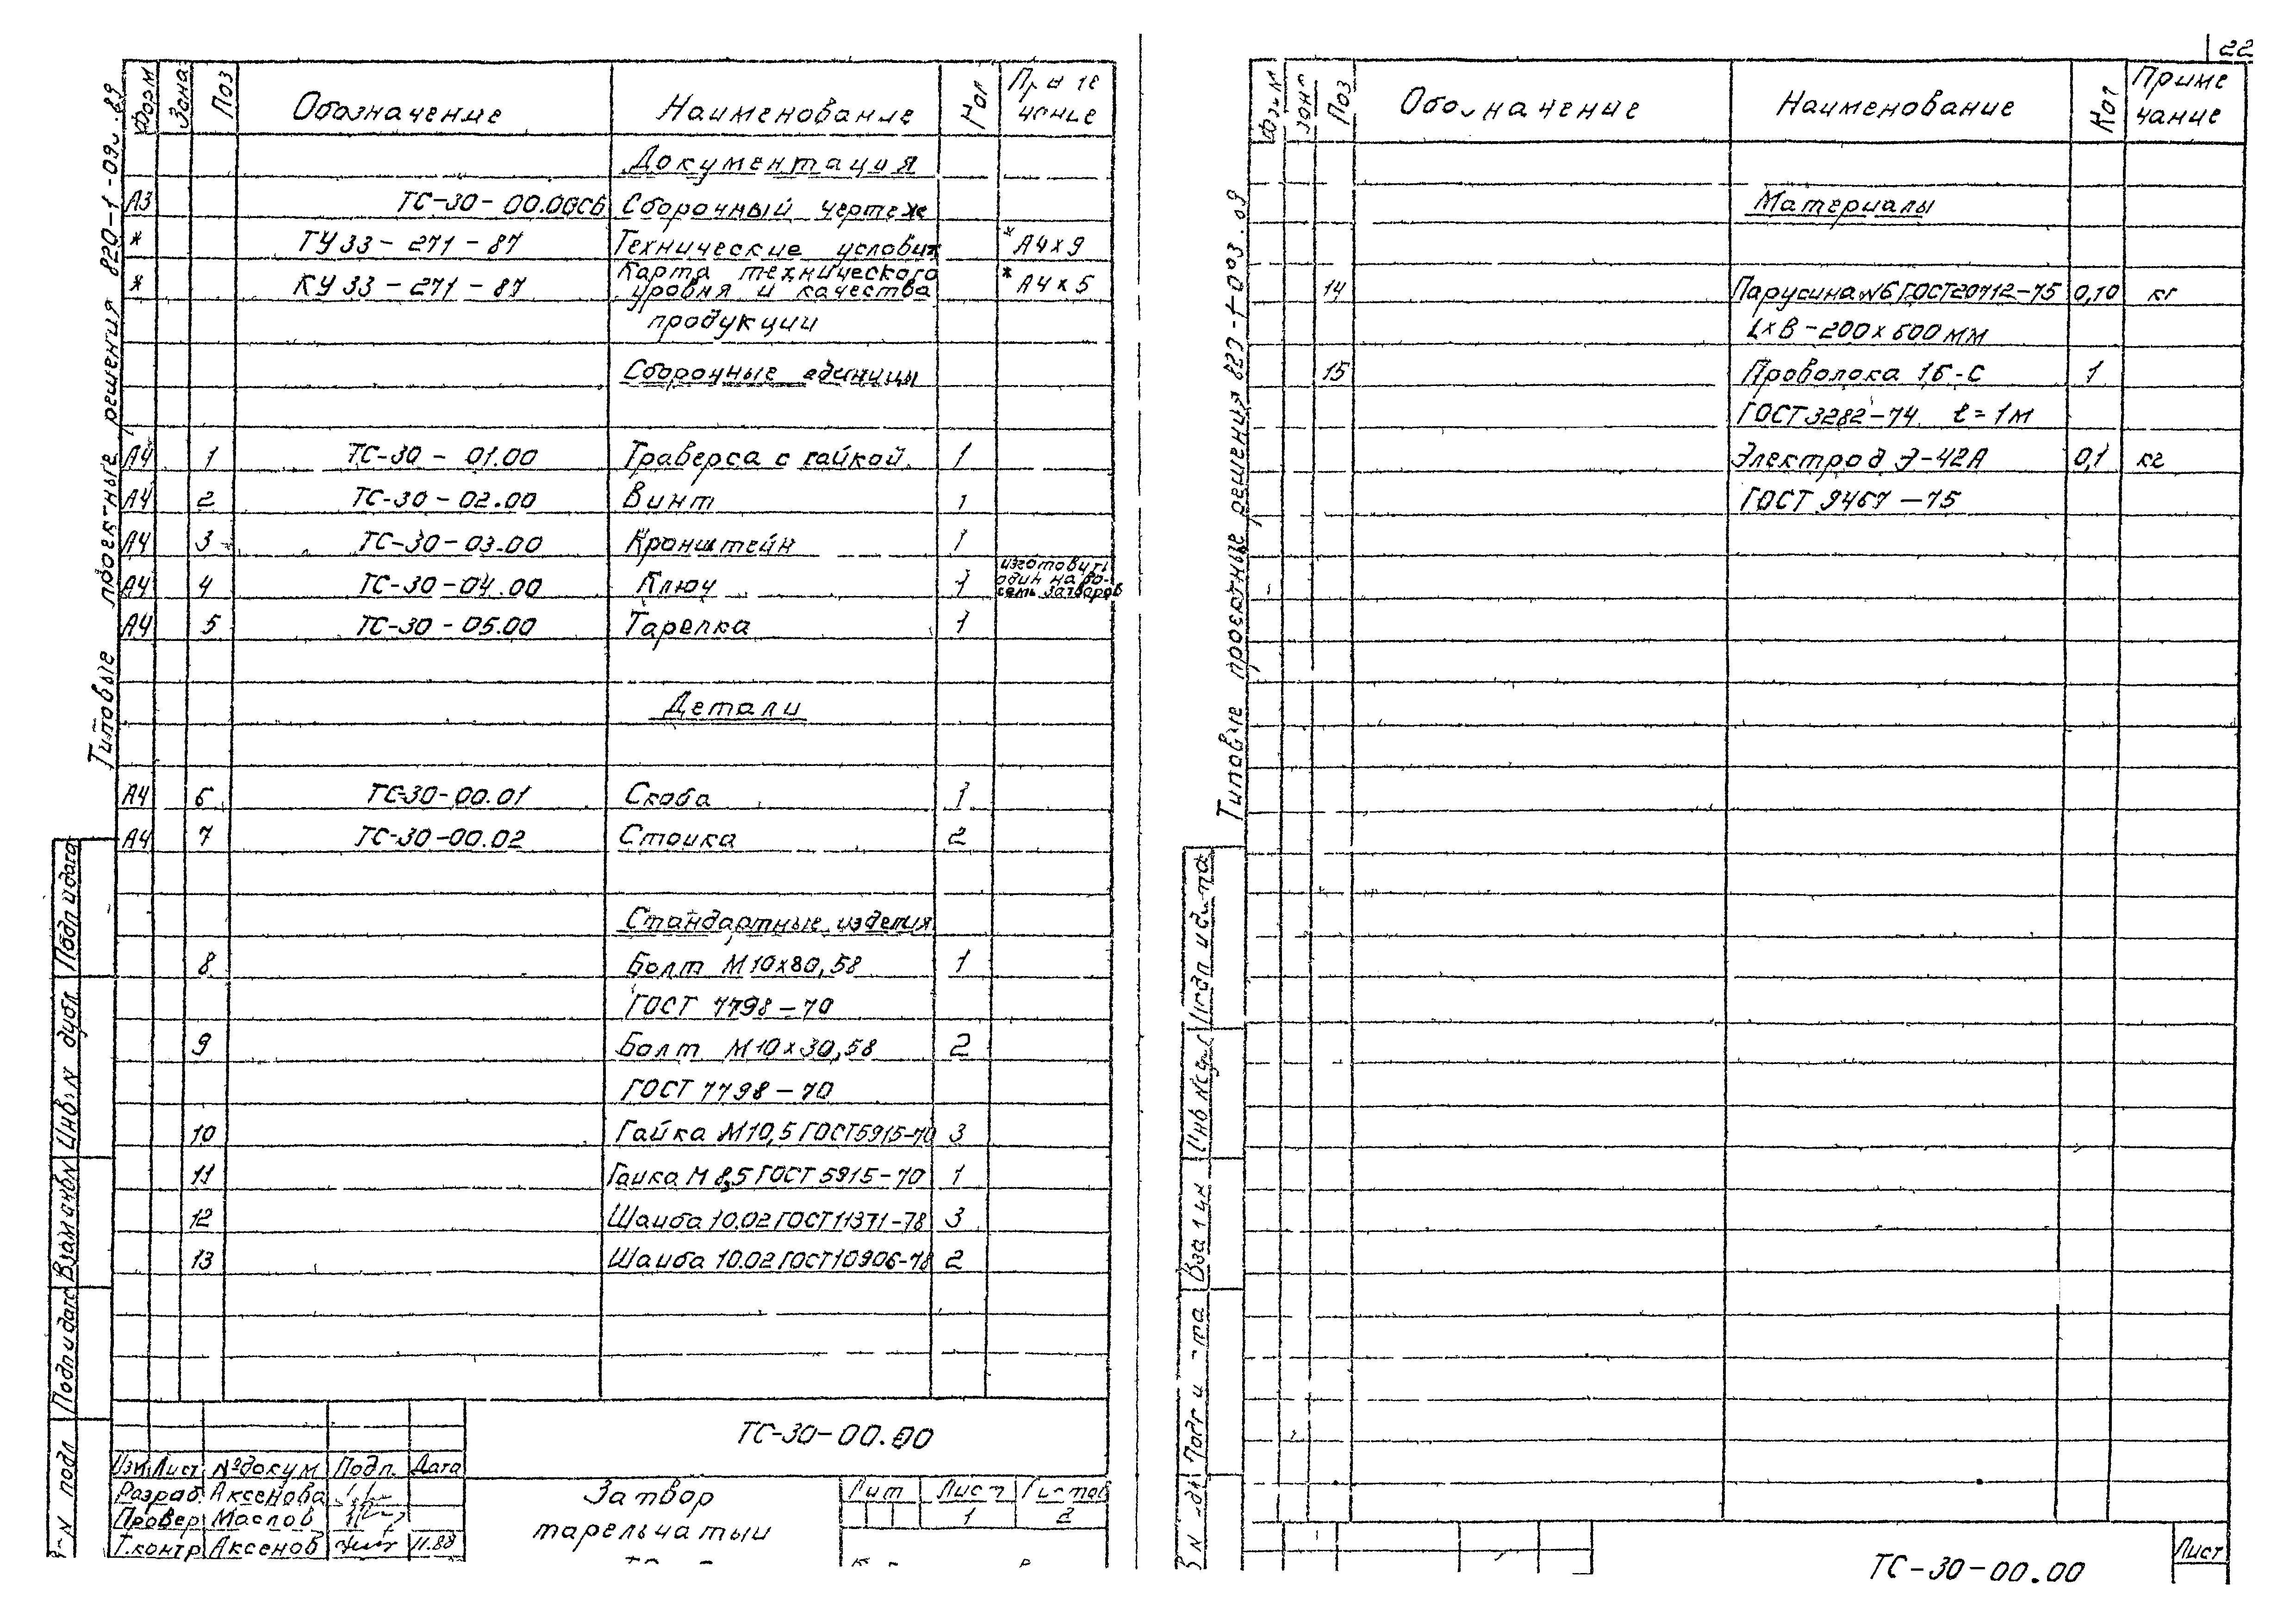 22
Типовые проектные решения 820-1-09.89
Форм Зона Поз Обозначение Наименование Кол
чание
Документация
А3 ТС-30-00.00СБ Сборочный чертеж
* ТУ 33-271-87 Технические условия * А4×9
* КУ 33-271-87 Карта технического * А4×5
уровня и качества
продукции
Сборочные единицы
А4 1 ТС-30-01.00 Траверса с гайкой 1
А4 2 ТС-30-02.00 Винт 1
А4 3 ТС-30-03.00 Кронштейн 1
А4 4 ТС-30-04.00 Ключ 1 изготовить
один на во-
семь затворов
А4 5 ТС-30-05.00 Тарелка 1
Детали
А4 6 ТС-30-00.01 Скоба 1
А4 7 ТС-30-00.02 Стоика 2
Стандартные изделия
8 Болт М10×80,58 1
ГОСТ 7798-70
9 Болт М10×30,58 2
ГОСТ 7798-70
10 Гайка М10,5 ГОСТ 5915-70 3
11 Гаика М 8,5 ГОСТ 5915-70 1
12 Шаиба 10.02 ГОСТ 11371-78 3
13 Шаиба 10.02 ГОСТ 10906-78 2
Подп и дата
Инв. N дубл.
Взам инв N
Подп и дата
N подл
ТС-30-00.00
Изм. Лист №докум Подп. Дата
Разраб. Аксенова
Провер Маслов
Т.контр Аксенов 11.88
Затвор
тарельчатый
Лит Лист Листов
1 2
Типовые проектные решения 820-1-093.89
Поз Обозначение Наименование Кол Приме
чание
Материалы
14 Парусина №6 ГОСТ 20712-75 0,10 кг
L×B-200×600 мм
15 Проволока 1,6-С 1
ГОСТ 3282-74 ℓ=1м
Электрод Э-42А 0,1 кг
ГОСТ 9467-75
ТС-30-00.00
Лист